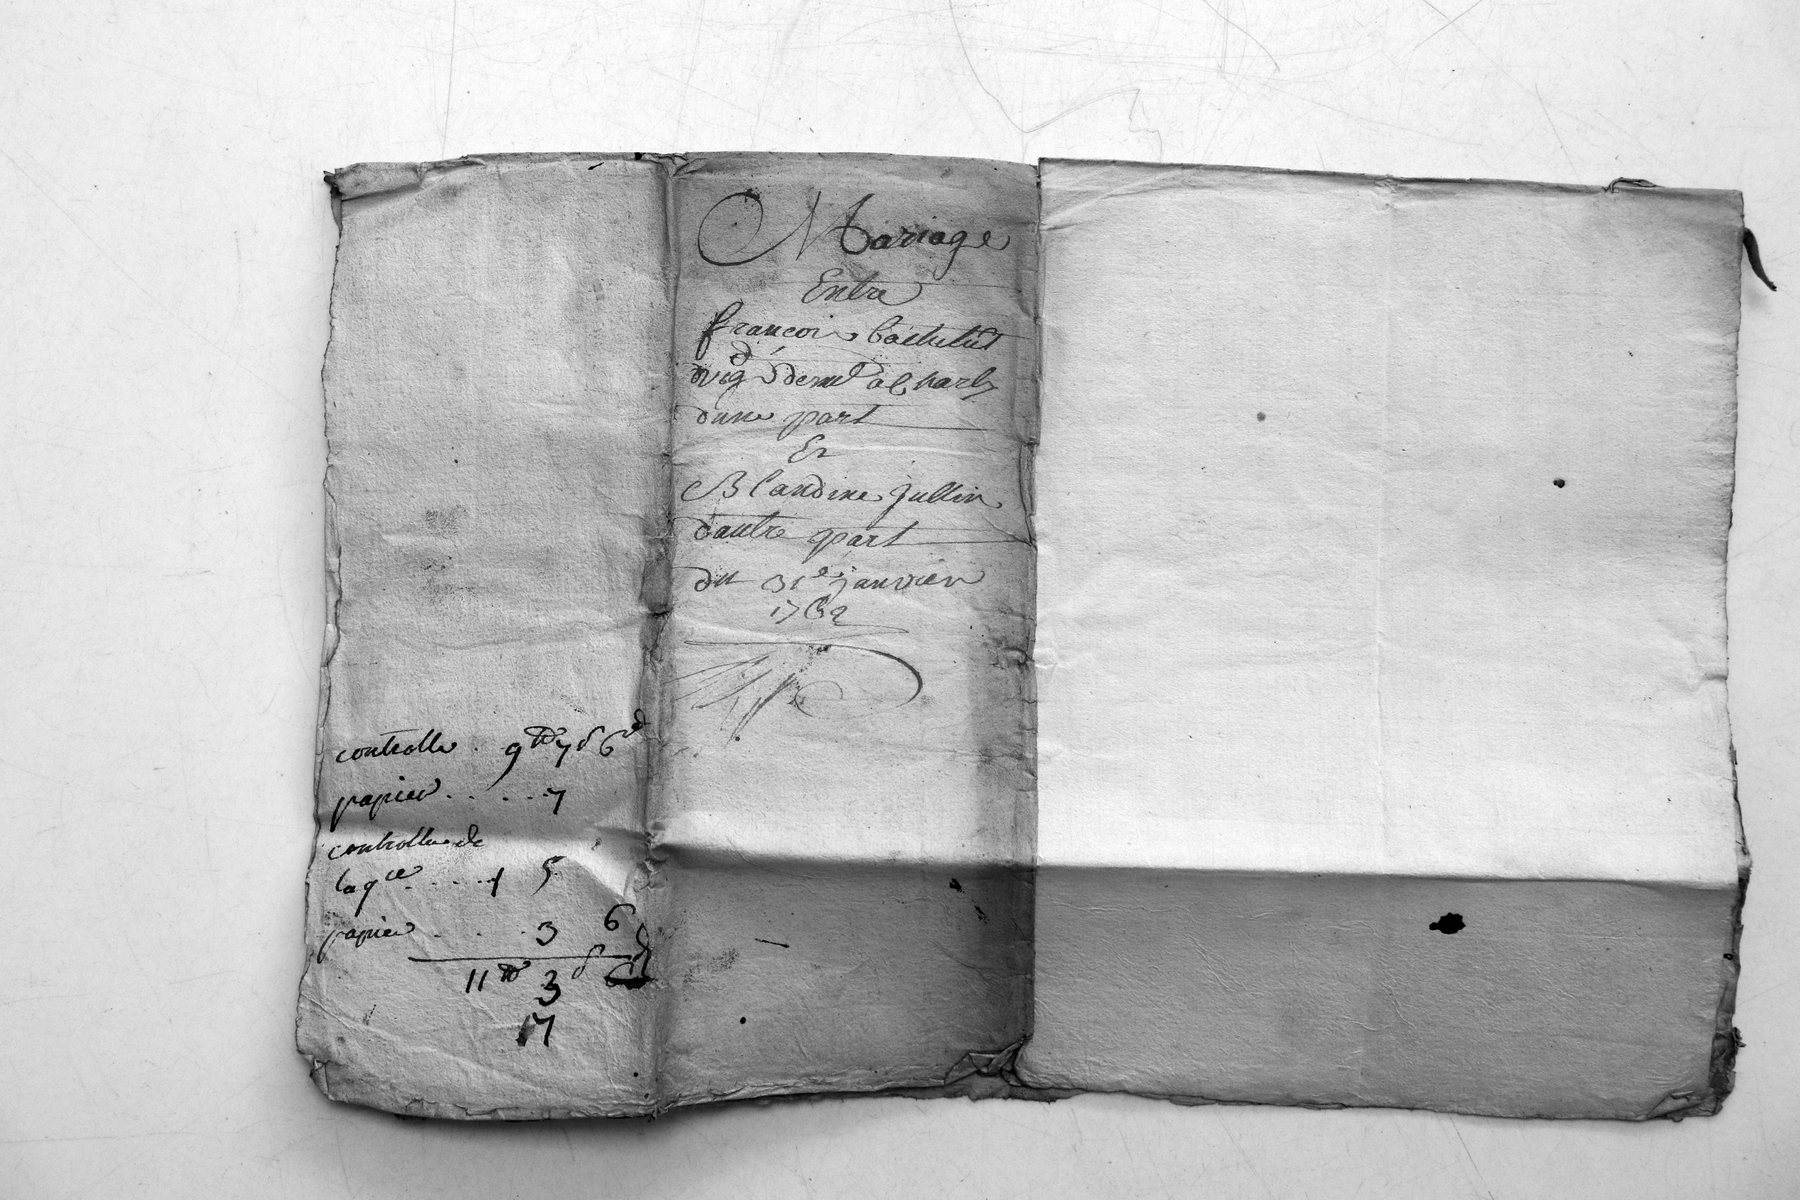 controlle . 9tt 7s 6d
papier . . . . . 7
controlle de
laqte . . . . . 1 5
papier . . . . . 3 6
11tt 3s 6d
3
17
Mariage
Entre
francois bachelut
vig d demt a Charly
dune part
Et
Blandine Jullin
dautre part
du 31e janvier
1762